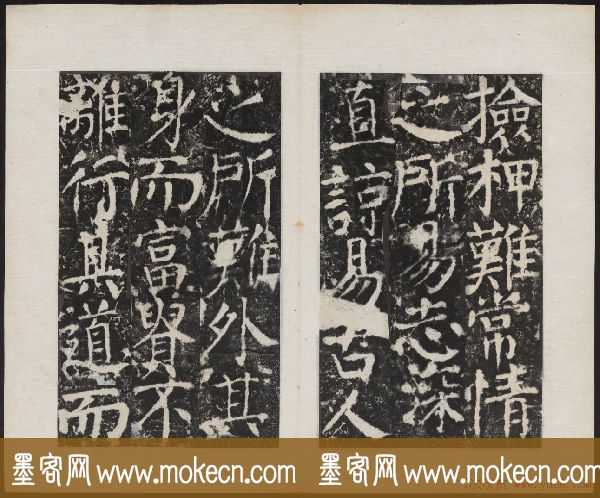 撿柙難常情
之所易志深
直諒易古人
之所難外其
身而富貴不
離行其道而
墨客网 www.mokecn.com
墨客网 www.mokecn.com